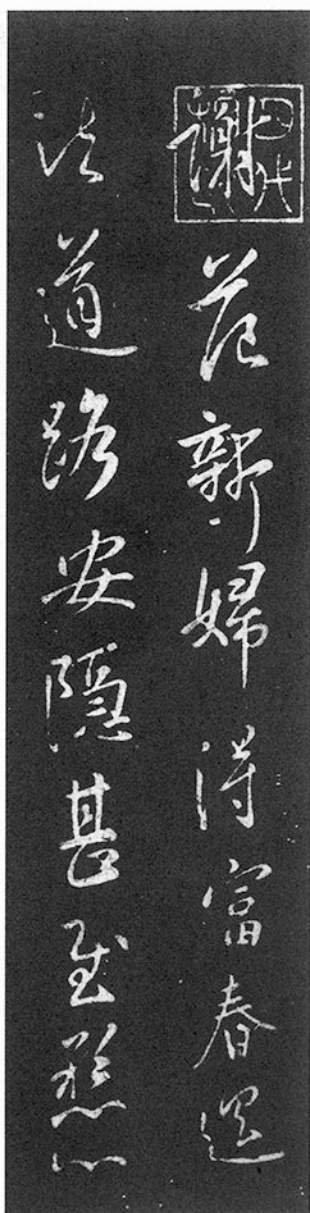 謝范新婦得富春還
諸道路安隱甚慰懸心